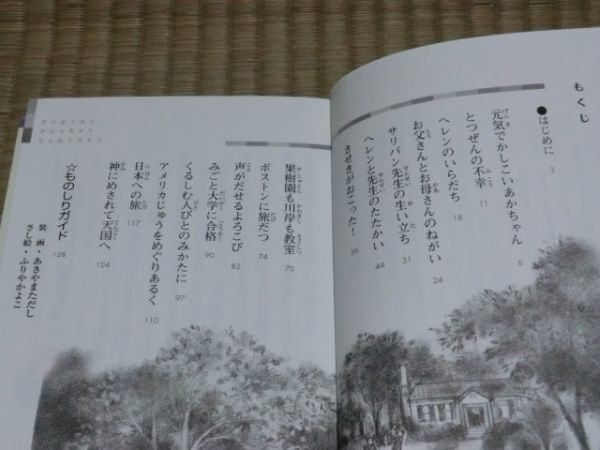 もくじ
●はじめに 3
元気でかしこいあかちゃん 6
とつぜんの不幸 11
ヘレンのいらだち 18
お父さんとお母さんのねがい 24
サリバン先生の生い立ち 31
ヘレンと先生のたたかい 44
きせきがおこった! 56
果樹園も川岸も教室 70
ボストンに旅だつ 74
声がだせるよろこび 82
みごと大学に合格 90
くるしむ人びとのみかたに 97
アメリカじゅうをめぐりあるく 110
日本への旅 117
神にめされて天国へ 124
☆ものしりガイド 128
装画・あきやまただし
さし絵・ふりやかよこ
Poplar
Pocket
Library